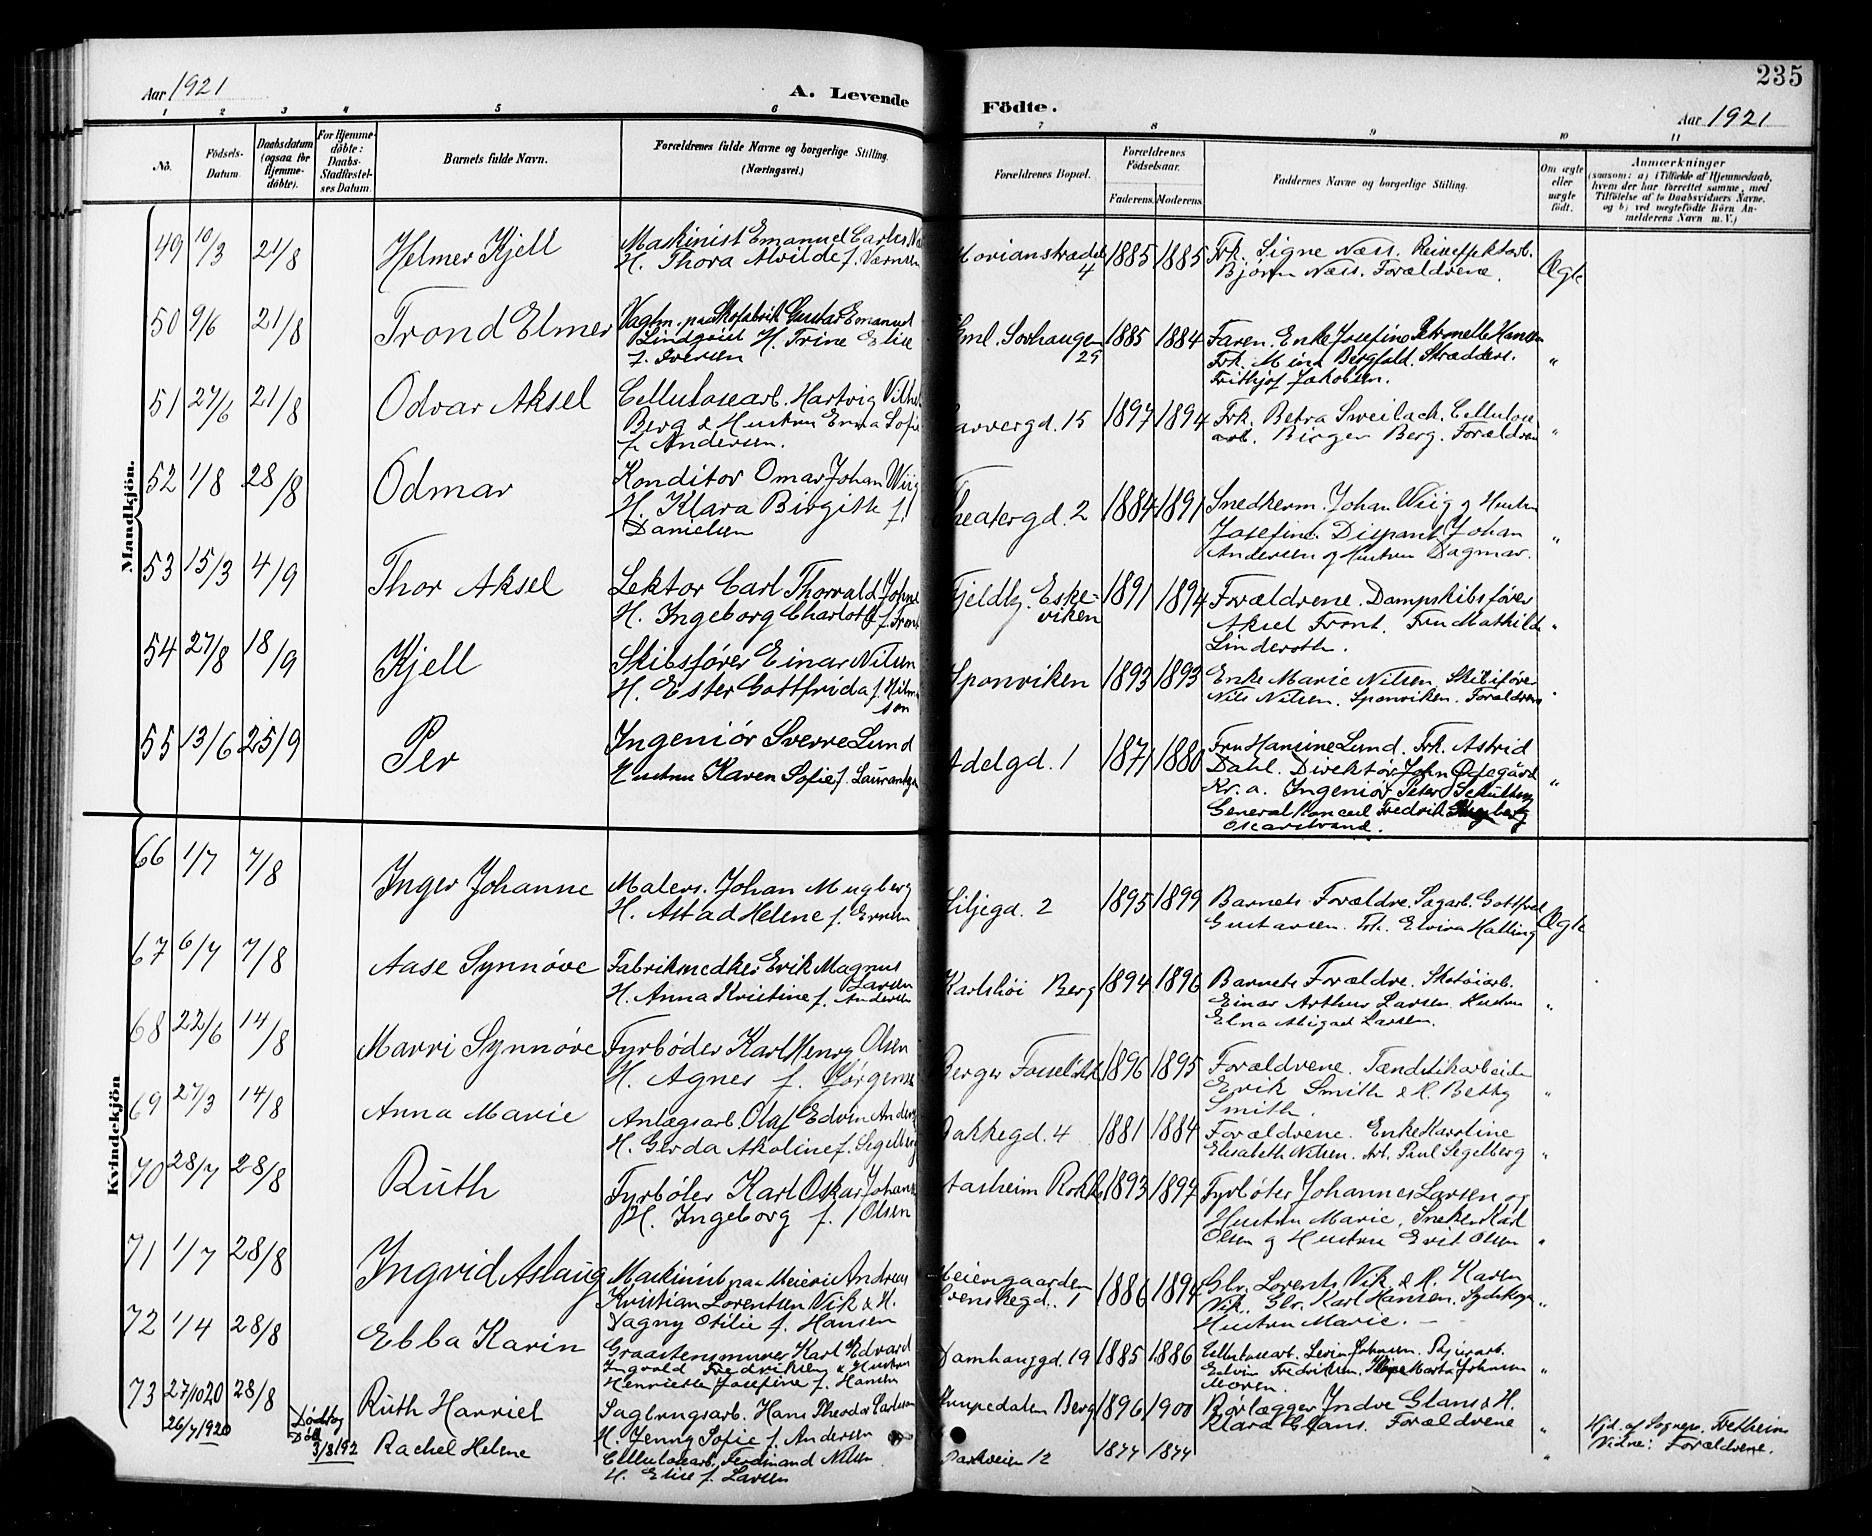 235
Aar 1921
A. Levende
Födte.
Aar 1921
1 2 3 4 5 6 7 8 9 10 11
No.
Födsels-Datum.
Daabsdatum (ogsaa for Hjemme-döbte).
For Hjemme-döbte: Daabs-Stadfæstelses Datum.
Barnets fulde Navn.
Forældrenes fulde Navne og borgerlige Stilling. (Næringsvei.)
Forældrenes Bopæl.
Forældrenes Födselsaar.
Faderens. Moderens.
Faddernes Navne og borgerlige Stilling.
Om ægte eller uægte födt.
Anmærkninger
(saasom: a) i Tilfælde af Hjemmedaab, hvem der har forrettet samme, med Tilföielse af to Daabsvidners Navne, og b) ved uægtefödte Börn Anmelderens Navn m. V.)
Mandkjön.
49 10/3 21/8 Helmer Kjell
Maskinist Emanuel Carlus
H. Thora Alvilde f.
4 1885 1885
Frk. Signe Næss.
Bjørn Næss. Forældrene. Ægte
50 9/6 21/8 Trond Elmer
Vagtm. paa Skofabrik Gustav Emanuel
Lindqvist H. Trine Elise
f. Iversen
Gml. Sorhaugen
25 1885 1884
Faren. Enke Josefine Petronelle Hansen
Frk. Mina Bergfald. Skrædders.
Frithjof Jakobsen. "
51 27/6 21/8 Odvar Aksel
Cellulosearb. Hartvig
Berg & Hustru Emma Sofie
f. Andersen.
15 1897 1894
Frk. Betra
arb. Birger Berg. Forældrene "
52 1/8 28/8 Odmar
Konditor Omar Johan Wiig
H. Klara Birgitte f.
Danielsen
Theatergd. 2 1884 1891
Snedkerm. Johan Wiig og Hustru
Josefine. Disponent Johan
Andersen og Hustru Dagmar. "
53 15/3 4/9 Thor Aksel
Lektor Carl Thorvald
H. Ingeborg Charlotte f.
Fjeldby. Eske-
viken 1891 1894
Forældrene. Dampskibsfører
Aksel Front. Fru Mathilde
Linderoth. "
54 27/8 18/9 Kjell
Skibsfører Einar Nilsen
H. Ester Gottfrida f.
Sponviken 1893 1893
Enke Marie Nilsen. Skibsfører
Nils Nilsen. Sponviken. Forældrene "
55 13/6 25/9 Per
Ingeniør Sverre Lund
Hustru Karen Sofie f.
Adelgd. 1 1871 1880
Fru Hansine Lund. Frk. Astrid
Dahl. Direktør John
Kr.a. Ingeniør Peter
Generalkonsul Fredrik
Oscarstrand. "
Kvindekjön
66 1/7 7/8 Inger Johanne
Malers. Johan Mugberg
H. Astad Helene f.
Liljegd. 2 1895 1899
Barnets Forældre. Sagarb. Gottfred
Gustavsen. Frk. Elvira Halling Ægte
67 6/7 7/8 Aase Synnøve
Fabriksnedker Erik Magnus
Larsen
H. Anna Kristine f. Andersen
Karlshøi Berg 1894 1896
Barnets Forældre. Skotøiarb.
Einar Arthur Larsen. Hustru
Elna Abigael Larsen. "
68 22/6 14/8 Marri Synnøve
Fyrbøder Karl Henry Olsen
H. Agnes f.
Berger 1896 1895
Forældrene. Tændstikarbeider
Erik Smith & H. Betty
Smith. "
69 27/3 14/8 Anna Marie
Anlægsarb. Olaf Edvin
H. Gerda Akoline f. Segelberg
Bakkegd. 4 1881 1884
Forældrene. Enke Karoline
Elisabeth Nilsen. Arb. Paul Segelberg "
70 28/7 28/8 Ruth
Fyrbøter Karl Oskar
H. Ingeborg f. Olsen
Aasheim Rokke 1893 1897
Fyrbøter Johannes Larsen og
Hustru Marie. Sneker Karl
Olsen og Hustru Olsen "
71 1/7 28/8 Ingrid Aslaug
Maskinist paa Meieri Andreas
Kristian Lorentsen Vik & H.
Dagny Otilie f. Hansen
Meierigaarden
Svenskegd. 1 1886 1894
Gbr. Lorents Vik & H. Karen
Vik. Gbr. Karl Hansen.
Hustru Marie. "
72 1/4 28/8 Ebba Karin
Graastensmurer Karl Edvard
Ingvald Fredriksen & Hustru
Henriette Josefine f. Hansen
Damhauggd. 19 1885 1886
Cellulosearb. Johnsen.
Edvin Fredriksen. Marta Johnsen
Moren. "
73 27/10 20 28/8 Ruth Harriet
Sagbrugsarb. Hans Theodor Carlsson
H. Jenny Sofie f. Andersen
Berg 1896 1900
Rørlægger Glans & H.
Klara Glans. Forældrene "
26/7 1920 Dødsbg
Død
3/8 192
Rachel Helene
Cellulosearb. Ferdinand Nilsen
H. Elise f. Larsen
Parkveien 12 1877 1877 "
Hjd. af Sognepr. Fretheim
Vidne: Forældrene.